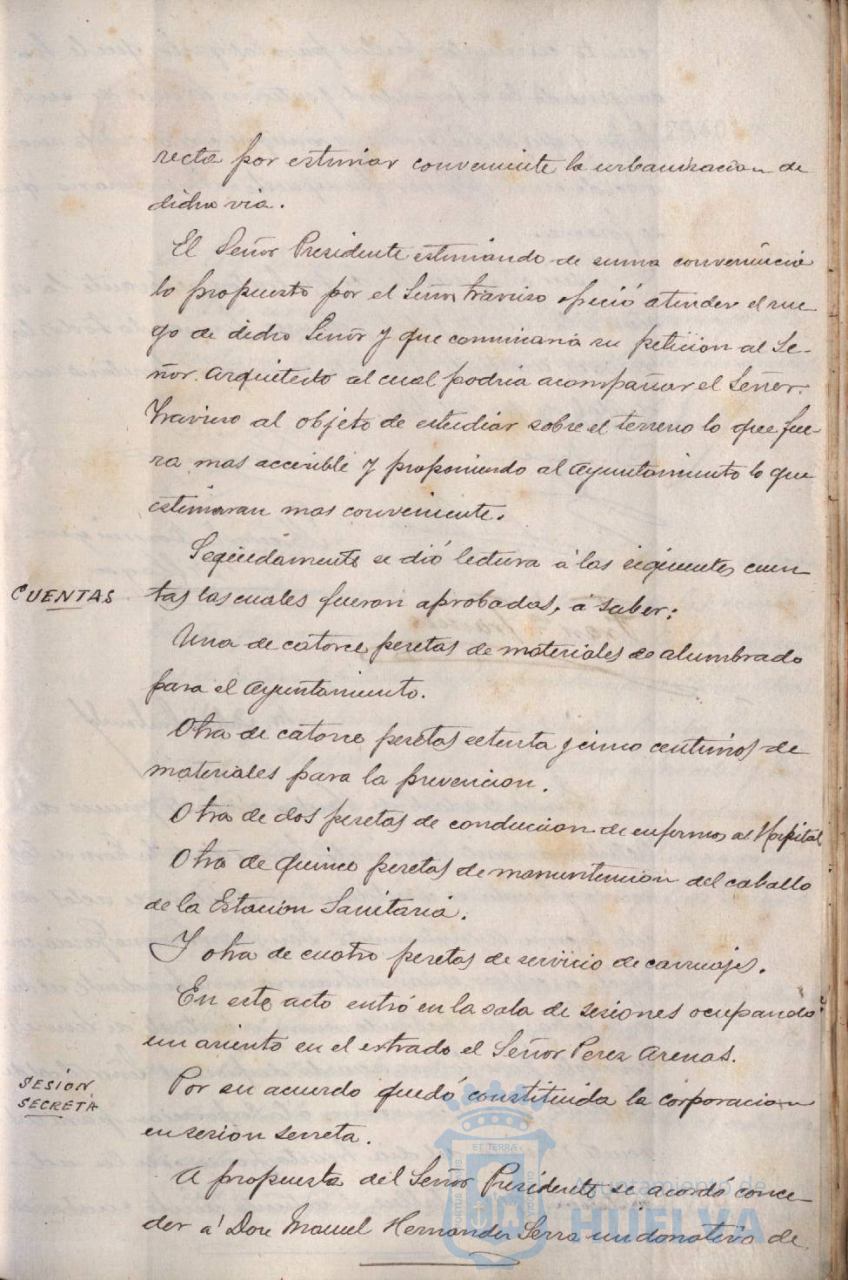 recta por estimar conveniente la urbanizacion de
dicha via.
El Señor Presidente estimando de suma conveniencia
lo propuesto por el Señor Traviso ofreció atender el rue-
go de dicho Señor y que comunicaria su peticion al Se-
ñor Arquitecto al cual podria acompañar el Señor
Traviso al objeto de estudiar sobre el terreno lo que fue-
ra mas accesible y proponiendo al Ayuntamiento lo que
estimaran mas conveniente.
CUENTAS
Seguidamente se dió lectura á las siguientes cuen
tas las cuales fueron aprobadas, á saber:
Una de catorce pesetas de materiales de alumbrado
para el Ayuntamiento.
Otra de catorce pesetas setenta y cinco centimos de
materiales para la prevencion.
Otra de dos pesetas de conducion de enfermos al Hospital
Otra de quince pesetas de manuntencion del caballo
de la Estacion Sanitaria.
Y otra de cuatro pesetas de servicio de carruajes.
En este acto entró en la sala de sesiones ocupando
un asiento en el estrado el Señor Perez Arenas.
SESION
SECRETA
Por su acuerdo quedó constituida la corporacion
en sesion secreta.
A propuesta del Señor Presidente se acordó conce
der á Don Manuel Hernandez Serra un donativo de
Ayuntamiento de
HUELVA